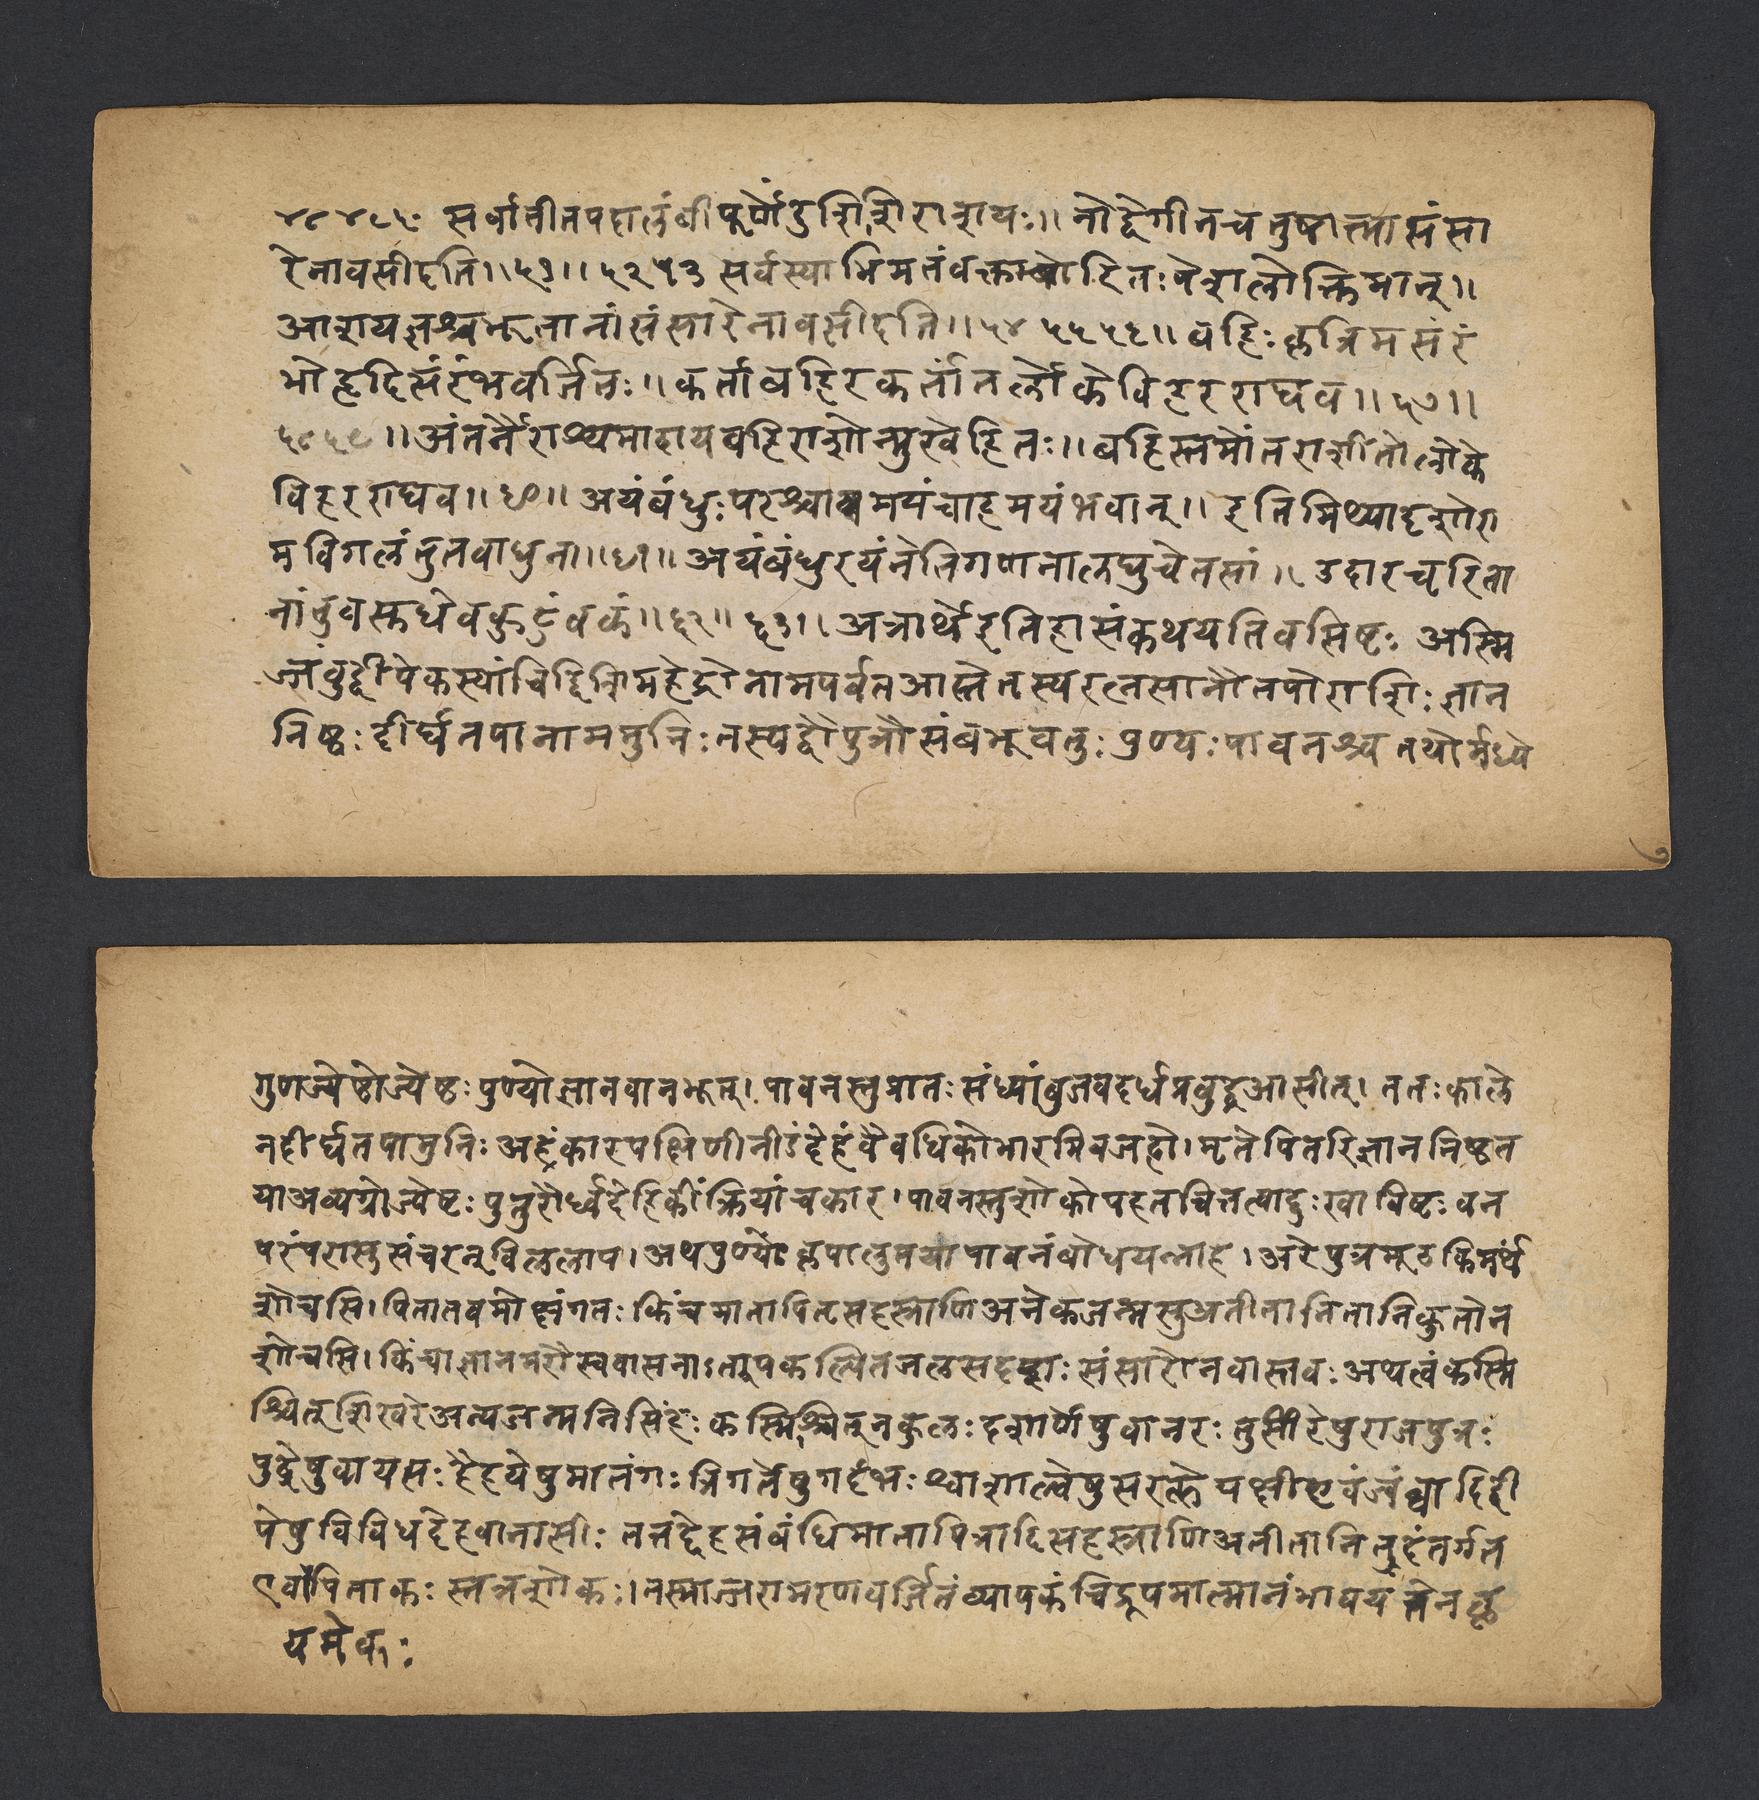 ४८ ४८५ः सर्वातीतपदालंबी पूर्णेंदुशिशिराशयः ।। नोद्वेगीनचतुष्टात्मासंसा
रेनावसीदति ।। ५१ ।। ५२ ५३ सर्वस्याभिमतंवक्ताचोदितःपेशलोक्तिमान् ।।
आशयज्ञश्चभूतानांसंसारेनावसीदति ।। ५४ ५५ ५६ ।। बहिःकृत्रिमसंरं
भोहृदिसंरंभवर्जितः ।। कर्ताबहिरकर्तांतर्लोकेविहरराघव ।। ५७ ।।
५८ ५९ ।। अंतर्नैराश्यमादायबहिराशोन्मुखेहितः ।। बहिस्तप्तोंतराशीतोलोके
विहरराघव ।। ६० ।। अयंबंधुःपरश्चायममयंचाहमयंभवान् ।। इतिमिथ्यादृशोरा
मविगलंतुतवाधुना ।। ६१ ।। अयंबंधुरयंनेतिगणनालघुचेतसां ।। उदारचरिता
नांतुवसुधैवकुटुंबकं ।। ६२ ।। ६३ ।। अत्रार्थेइतिहासंकथयतिवसिष्टः अस्मि
ञ्जंबुद्वीपेकस्यांचिद्दिशिमहेंद्रोनामपर्वतआस्तेतस्यरत्नसानौतपोराशिः ज्ञान
निष्ठः दीर्घतपानाममुनिः तस्यद्वौपुत्रौसंबभूवतुः पुण्यः पावनश्च तयोर्मध्ये
७
गुणज्येष्टोज्येष्ठः पुण्योज्ञानवानभूत् । पावनस्तुप्रातः संध्यांबुजवदर्धप्रबुद्धआसीत् । ततः काले
नदीर्घतपामुनिः अहंकारपक्षिणीनीडंदेहंवैवधिकोभारमिवजहौ । मृतेपितरिज्ञाननिष्ठत
याअव्यग्रोज्येष्टः पुत्ररौर्ध्वदेहिकींक्रियांचकार । पावनस्तुशोकोपहतचित्तत्वाद्दुःखाविष्टः वन
परंपरास्तुसंचरन्विललाप । अथपुण्यः कृपालुतयापावनंबोधयन्नाह । अरेपुत्रमूढकिमर्थं
शोचसि । पितातवमोक्षंगतः किंचमातापितृसहस्राणिअनेकजन्मसुअतीतानितानिकुतोन
शोचसि । किंचाज्ञानमरौस्ववासनाऽतपकल्पितजलसदृशः संसारोनवास्तवः अथत्वंकस्मि
श्चित्शिखरेअन्यजन्मनिसिंहः कस्मिंश्चित्नकुलः दशार्णेषुवानरः तुसीरेषुराजपुत्रः
पुंद्रेषुवायसः हैहयेषुमातंगः त्रिगर्तेषुगर्दभः श्वाशाल्वेषुसरलेपक्षीएवंजंब्वादिद्वी
पेषुविविधदेहवानासीः तत्तद्देहसंबंधिमातापित्रादिसहस्राणिअतीतानितद्देहांतर्गत
एवपिताकः स्तत्रशोकः । तस्माज्जरामरणवर्जितंव्यापकंचिद्रूपमात्मानंभावय तेनकृ
यमेकः